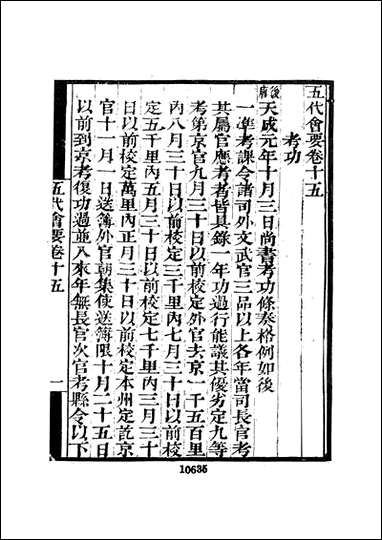 五代會要卷十五
考功
後唐天成元年十月三日尚書考功條奏格例如後
一準考課令諸司外文武官三品以上各年當司長官考
其屬官應考者皆具錄一年功過行能議其優劣定九等
考第京官九月三十日以前校定外官去京一千五百里
內八月三十日以前校定三千里內七月三十日以前校
定五千里內五月三十日以前校定七千里內三月三十
日以前校定萬里內正月三十日以前校定本州定訖京
官十一月一日送簿外官朝集使送簿限十月二十五日
以前到京考復功過並入來年無長官次官考縣令以下
五代會要卷十五 一
10635